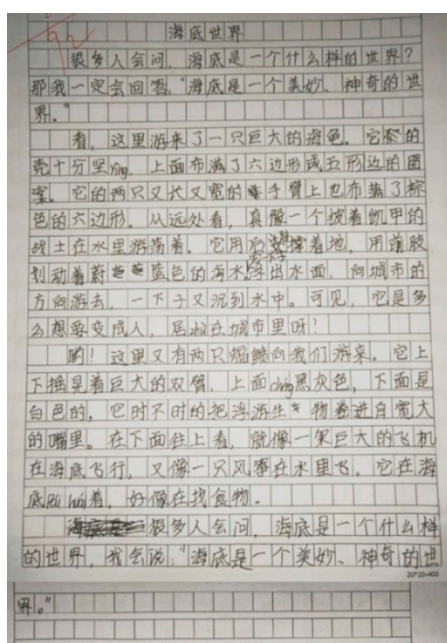 海底世界
很多人会问,海底是一个什么样的世界?
那我一定会回答:“海底是一个美妙、神奇的世
界。”
看,这里游来了一只巨大的海龟。它的
壳十分坚yìng,上面布满了六边形或五形边的图
案。它的两只又长又宽的手臂上也布满了棕
色的六边形。从远处看,真像一个披着凯甲的
战士在水里游荡着。它用后支撑着地,用前肢
划动着蔚蓝色的海水,浮出水面,向城市的
方向游去,一下子又沉到水中。可见,它是多
么想要变成人,居zhù在城市里呀!
哟!这里又有两只蝠鲼向我们游来。它上
下摇晃着巨大的双臂,上面chéng黑灰色,下面是
白色的,它时不时的把浮游生物卷进自宽大
的嘴里。在下面往上看,就像一架巨大的飞机
在海底飞行,又像一只风筝在水里飞。它在海
底pái huái着,好像在找食物。
很多人会问,海底是一个什么样
的世界,我会说:“海底是一个美妙、神奇的世
20*20=400
界。”